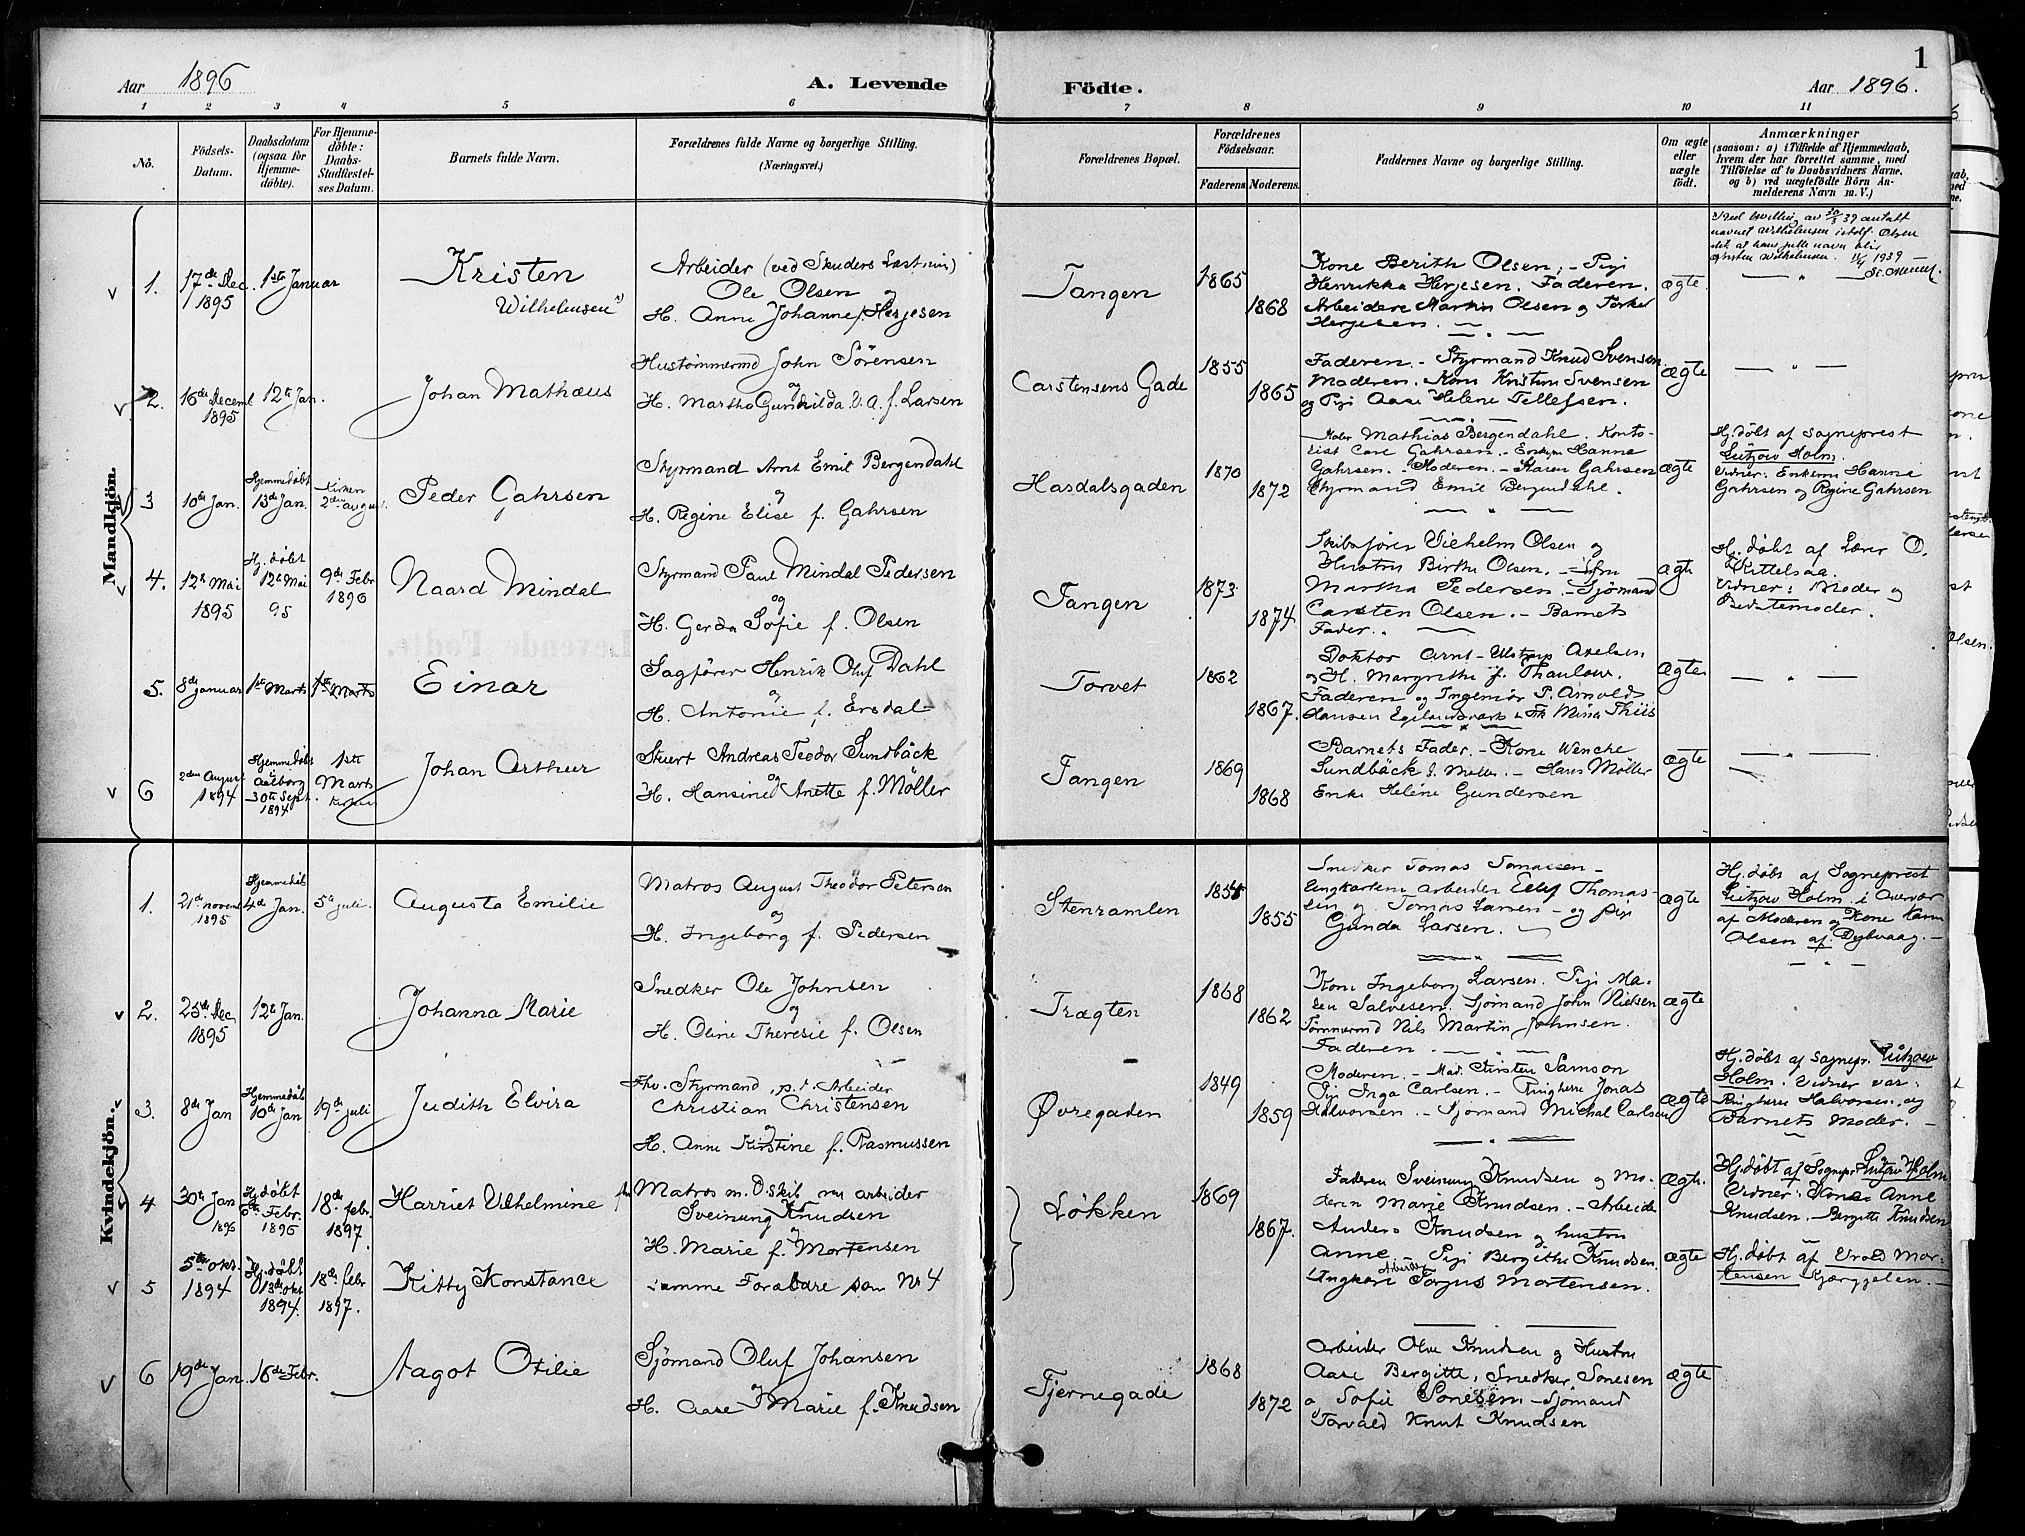 1
Aar 1896 A. Levende Födte. Aar 1896.
1 2 3 4 5 6 7 8 9 10 11
No.
Födsels-
Datum.
Daabsdatum
(ogsaa for
Hjemme-
döbte).
For Hjemme-
döbte:
Daabs-
Stadfæstel-
ses Datum.
Barnets fulde Navn.
Forældrenes fulde Navne og borgerlige Stilling.
(Næringsvei.)
Forældrenes Bopæl.
Forældrenes
Födselsaar.
Faderens. Moderens.
Faddernes Navne og borgerlige Stilling.
Om ægte
eller
uægte
födt.
Anmærkninger
(saasom: a) i Tilfælde af Hjemmedaab,
hvem der har forrettet samme, med
Tilföielse af to Daabsvidners Navne,
og b) ved uægtefödte Börn An-
melderens Navn m. V.)
Mandkjön.
1.
17de Dec
1895
1ste Januar
Kristen
Wilhelmsen
Arbeider (ved Skuders Lastning)
Ole Olsen
og
H. Anne Johanne f. Herjesen
Tangen
1865
1868
Kone Berith Olsen, - Pige
Henrikka Herjesen. Faderen.
Arbeidere Martin Olsen og
Herjesen.
ægte.
navnet Wilhelmsen istdf. Olsen
2.
16de Decemb
1895
12te Jan.
Johan Mathæus
Hustømmermd John Sörensen
og
H. Martha Gunhilda f. Larsen
Carstensens Gade
1855
1865
Faderen - Styrmand Knud Svensen
Moderen. Kone Kristine Svensen
og Pige Aase Helene Tellefsen.
ægte
3
10de Jan.
Hjemmedöbt
13de Jan.
Kirken
2den august.
Peder Gahrsen
Styrmand Arnt Emil Bergendahl
og
H. Regine Elise f. Gahrsen
Hasdalsgaden
1870
1872
Mathias Bergendahl. Konto-
rist Carl Gahrsen. Enken Hanna
Gahrsen. - Moderen. - Karen Gahrsen
Styrmand Emil Bergendahl.
ægte
Hj. døbt af Sogneprest
Lützow Holm.
Vidner: Enkem. Hanna
Gahrsen og Regine Gahrsen
4.
12te Mai
1895
Hj. døbt
12te Mai
95
9de Febr
1896
Naard Mindal
Styrmand Paul Mindal Pedersen
og
H. Gerda Sofie f. Olsen
Tangen
1873
1874
Skibsfører Vilhelm Olsen og
Hustru Birthe Olsen.
Martha Pedersen - Sjømand
Carsten Olsen. - Barnets
Fader.
ægte
Hj. døbt af Lærer O.
Kittelsaa.
Vidner: Moder og
Bedstemoder.
5.
8de januar
1ste Marts
1ste Marts
Einar
Sagfører Henrik Oluf Dahl
og
H. Antonie f. Ersdal
Torvet
1862
1867.
Doktor Arnt Ulstrup Axelsen
og H. Margrethe f. Thaulow.
Faderen og Ingeniør P. Arnold
Hansen Egelandsværk & Frk Mina Thiis
ægte
6
2den August
1894
Hjemmedöbt
Aalborg
30te Sept.
1894
1ste
Marts
Kirken
Johan Arthur
Stuert Andreas Teodor Sundbäck
og
H. Hansine Anette f. Möller
Tangen
1869
1868
Barnets Fader. - Kone Wenche
Sundbäck f. Möller. - Hans Möller
Enke Helene Gundersen
ægte
Kvindekjön.
1.
21de novemb
1895
Hjemmedöbt
4de Jan.
5te juli.
Augusta Emilie
Matros August Theodor Petersen
og
H. Ingeborg f. Pedersen
Stenramlen
1854
1855
Snedker Tomas Tomassen -
Ungkarlene arbeider Ellef Thomas-
sen og Tomas Larsen - og pige
Gunda Larsen.
ægte
Hj. døbt af Sogneprest
Lützow Holm i Overvær
af Moderen og Kone Karen
Olsen af Dybvaag. -
2.
25de Dec
1895
12te Jan.
Johanna Marie
Snedker Ole Johnsen
og
H. Oline Theresie f. Olsen
Trægten
1868
1862
Kone Ingeborg Larsen. Pige Ma-
ren Salvesen. Sjømand John Nielsen
Tømmermd Nils Martin Johnsen.
Faderen.
ægte
3.
8de Jan
Hjemmedöbt
10de Jan
19de juli
Judith Elvira
Fhv. Styrmand, p.t. Arbeider
Christian Christensen
og
H. Anne Kirstine f. Rasmussen
Øvregaden
1849
1859
Moderen. - Mad. Kirsten Samson
Pige Inga Carlsen. - Ringherre Jonas
Halvorsen. - Sjømand Michal Carlsen
ægte
Hj. døbt af Sognepr. Lützow
Holm. Vidner var:
Ringherre Halvorsen, og
Barnets Moder. -
4
30te Jan
1896
Hj. døbt
6te Febr.
1896
18de febr.
1897.
Harriet Vilhelmine
Matros m. O. skib, nu arbeider
Sveinung Knudsen
og
H. Marie f. Mortensen
Løkken
1869
1867.
Faderen Sveinung Knudsen og Mo-
deren Marie Knudsen. - Arbeider
Anders Knudsen og hustru
Anne. - Pige Bergithe Knudsen.
Ungkarl Arbeider Torjus Mortensen.
ægte.
Hj. døbt af Sognepr Lützow Holm
Vidner: Kone Anne
Knudsen. - Bergitte Knudsen
5
5te okt.
1894
Hj. døbt
13de okt
1894.
18de febr
1897.
Kitty Konstance
samme Forældre som No 4
ægte
Hj. døbt af Mor-
tensen
6
19de Jan
16de Febr.
Aagot Otilie
Sjömand Oluf Johansen
og
H. Aase Marie f. Knudsen
Tjernegade
1868
1872
Arbeider Olve Knudsen og Hustru
Aase Bergitte, Snedker Sonesen
og Sofie Sonesen - Sjømand
Torvald Knut Knudsen
ægte